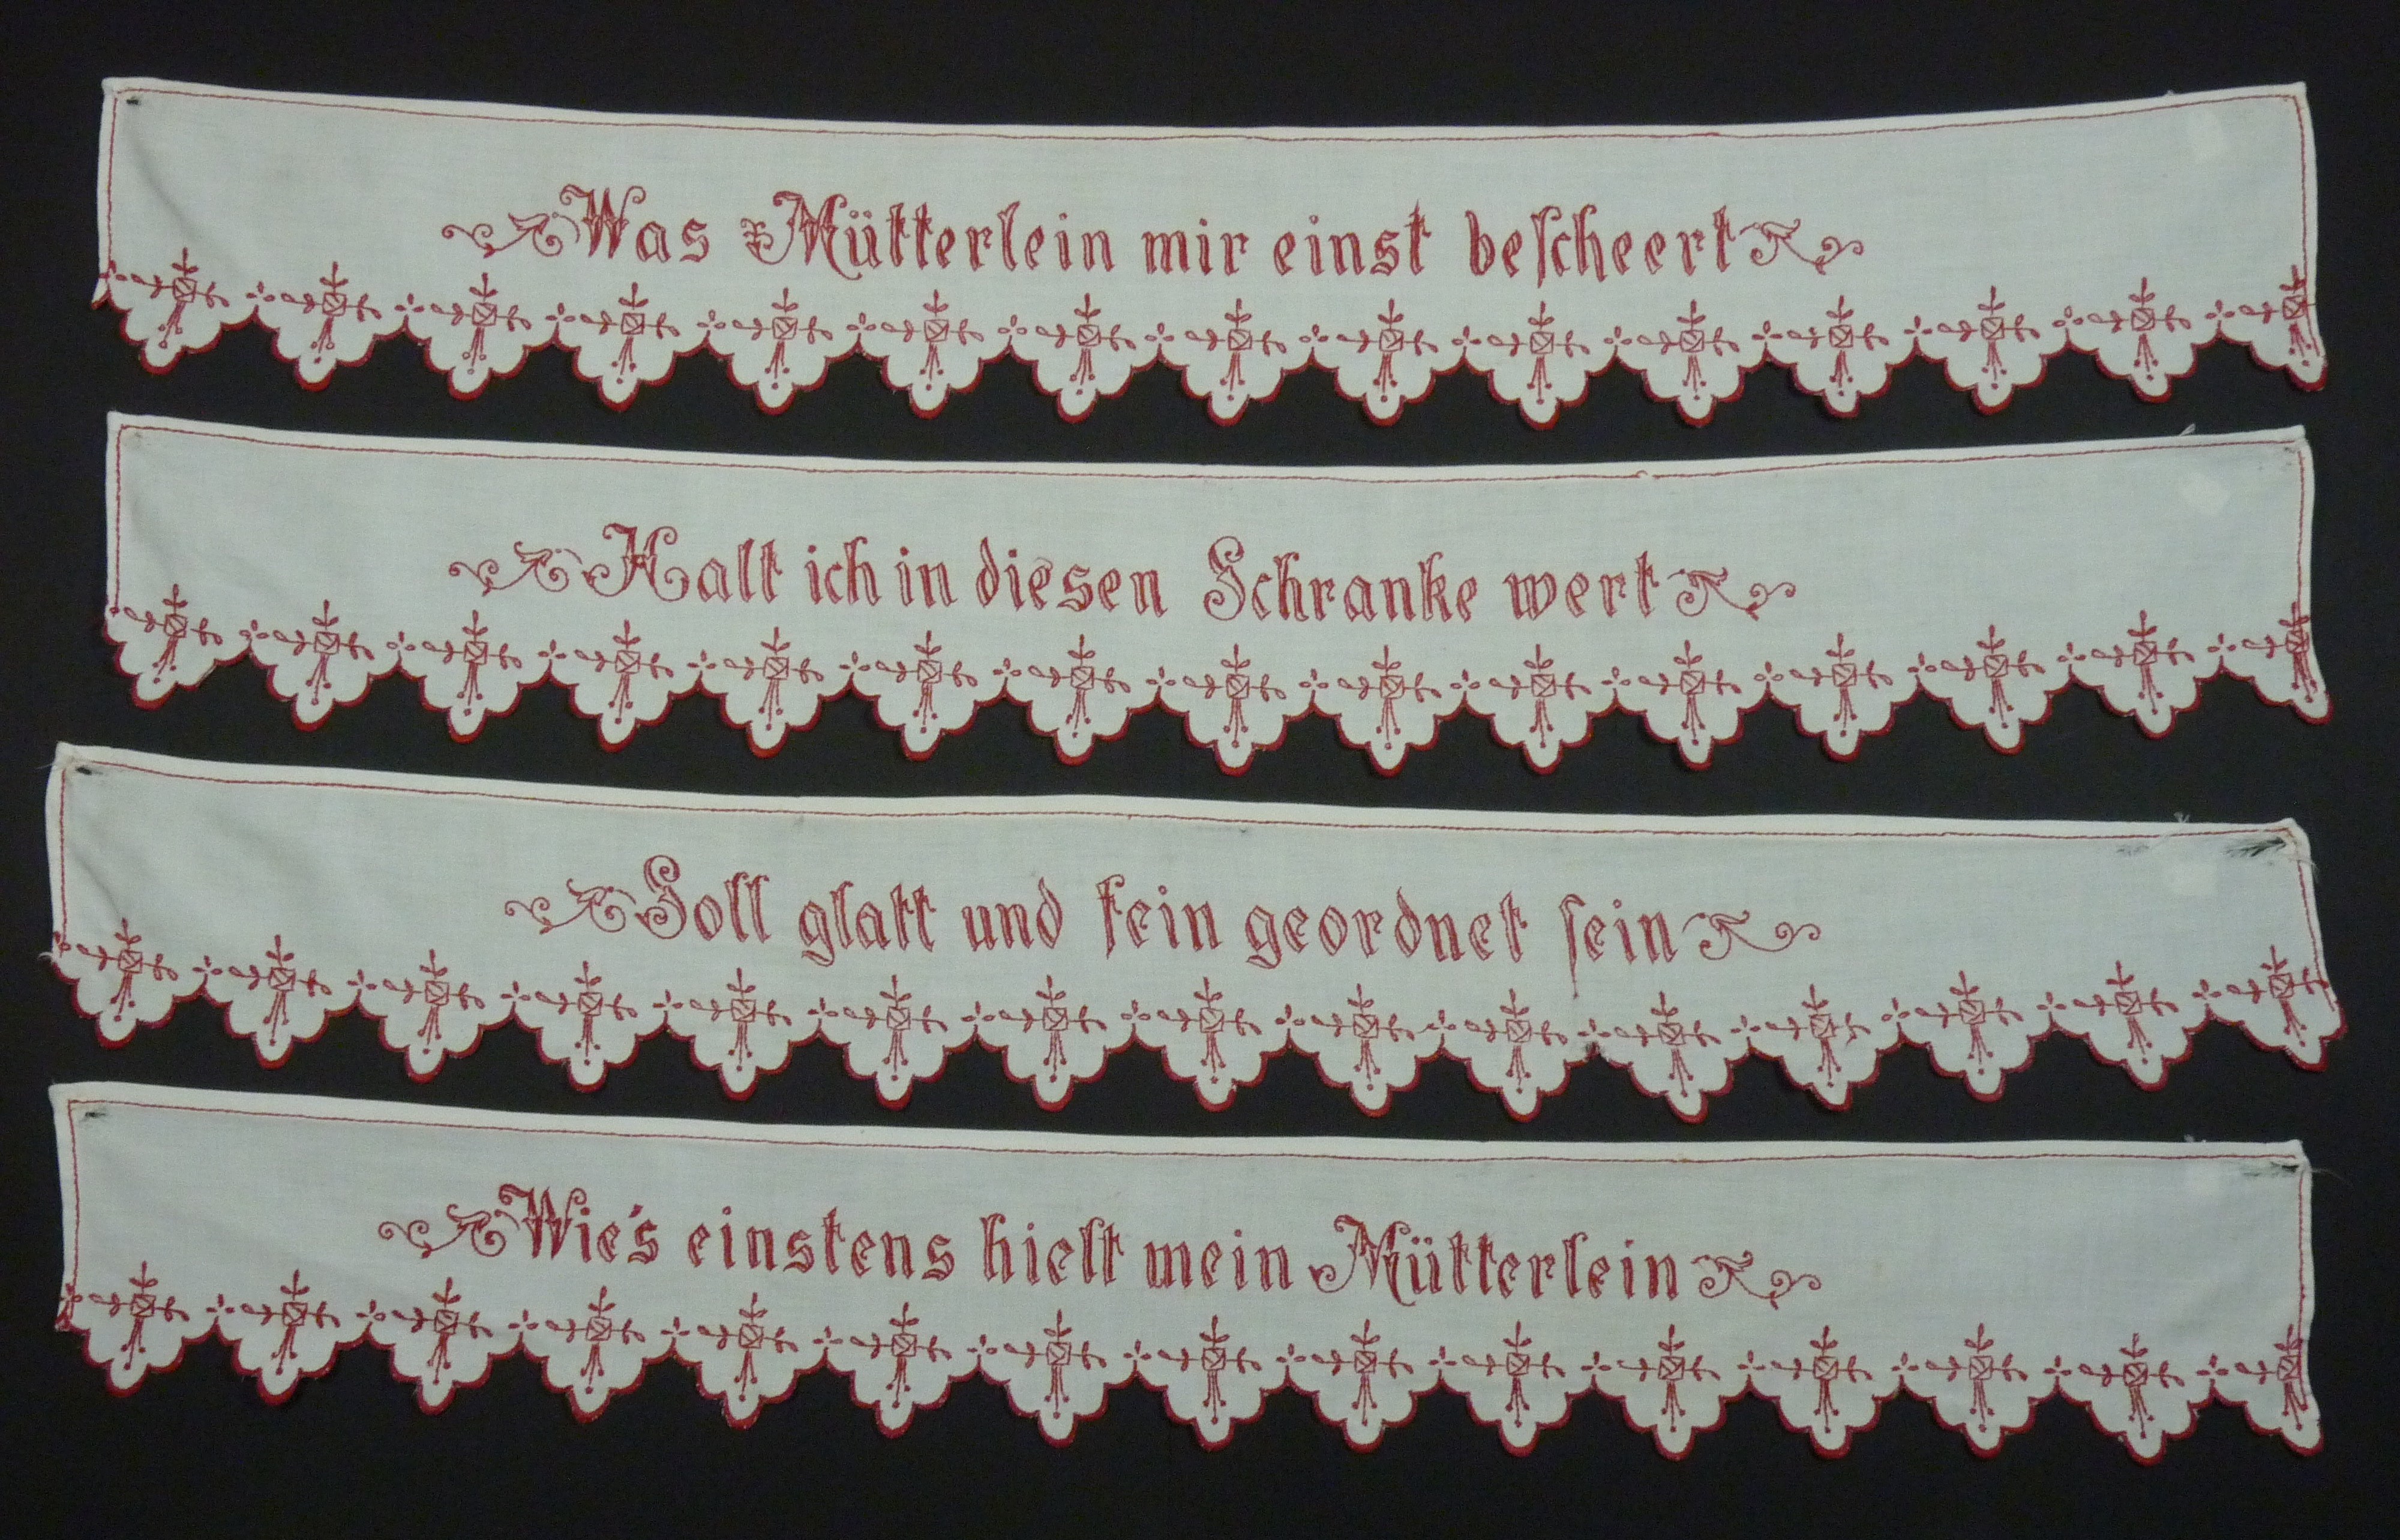 Was Mütterlein mir einst beſcheert
Halt ich in diesen Schranke wert
Soll glatt und fein geordnet ſein
Wie's einstens hielt mein Mütterlein